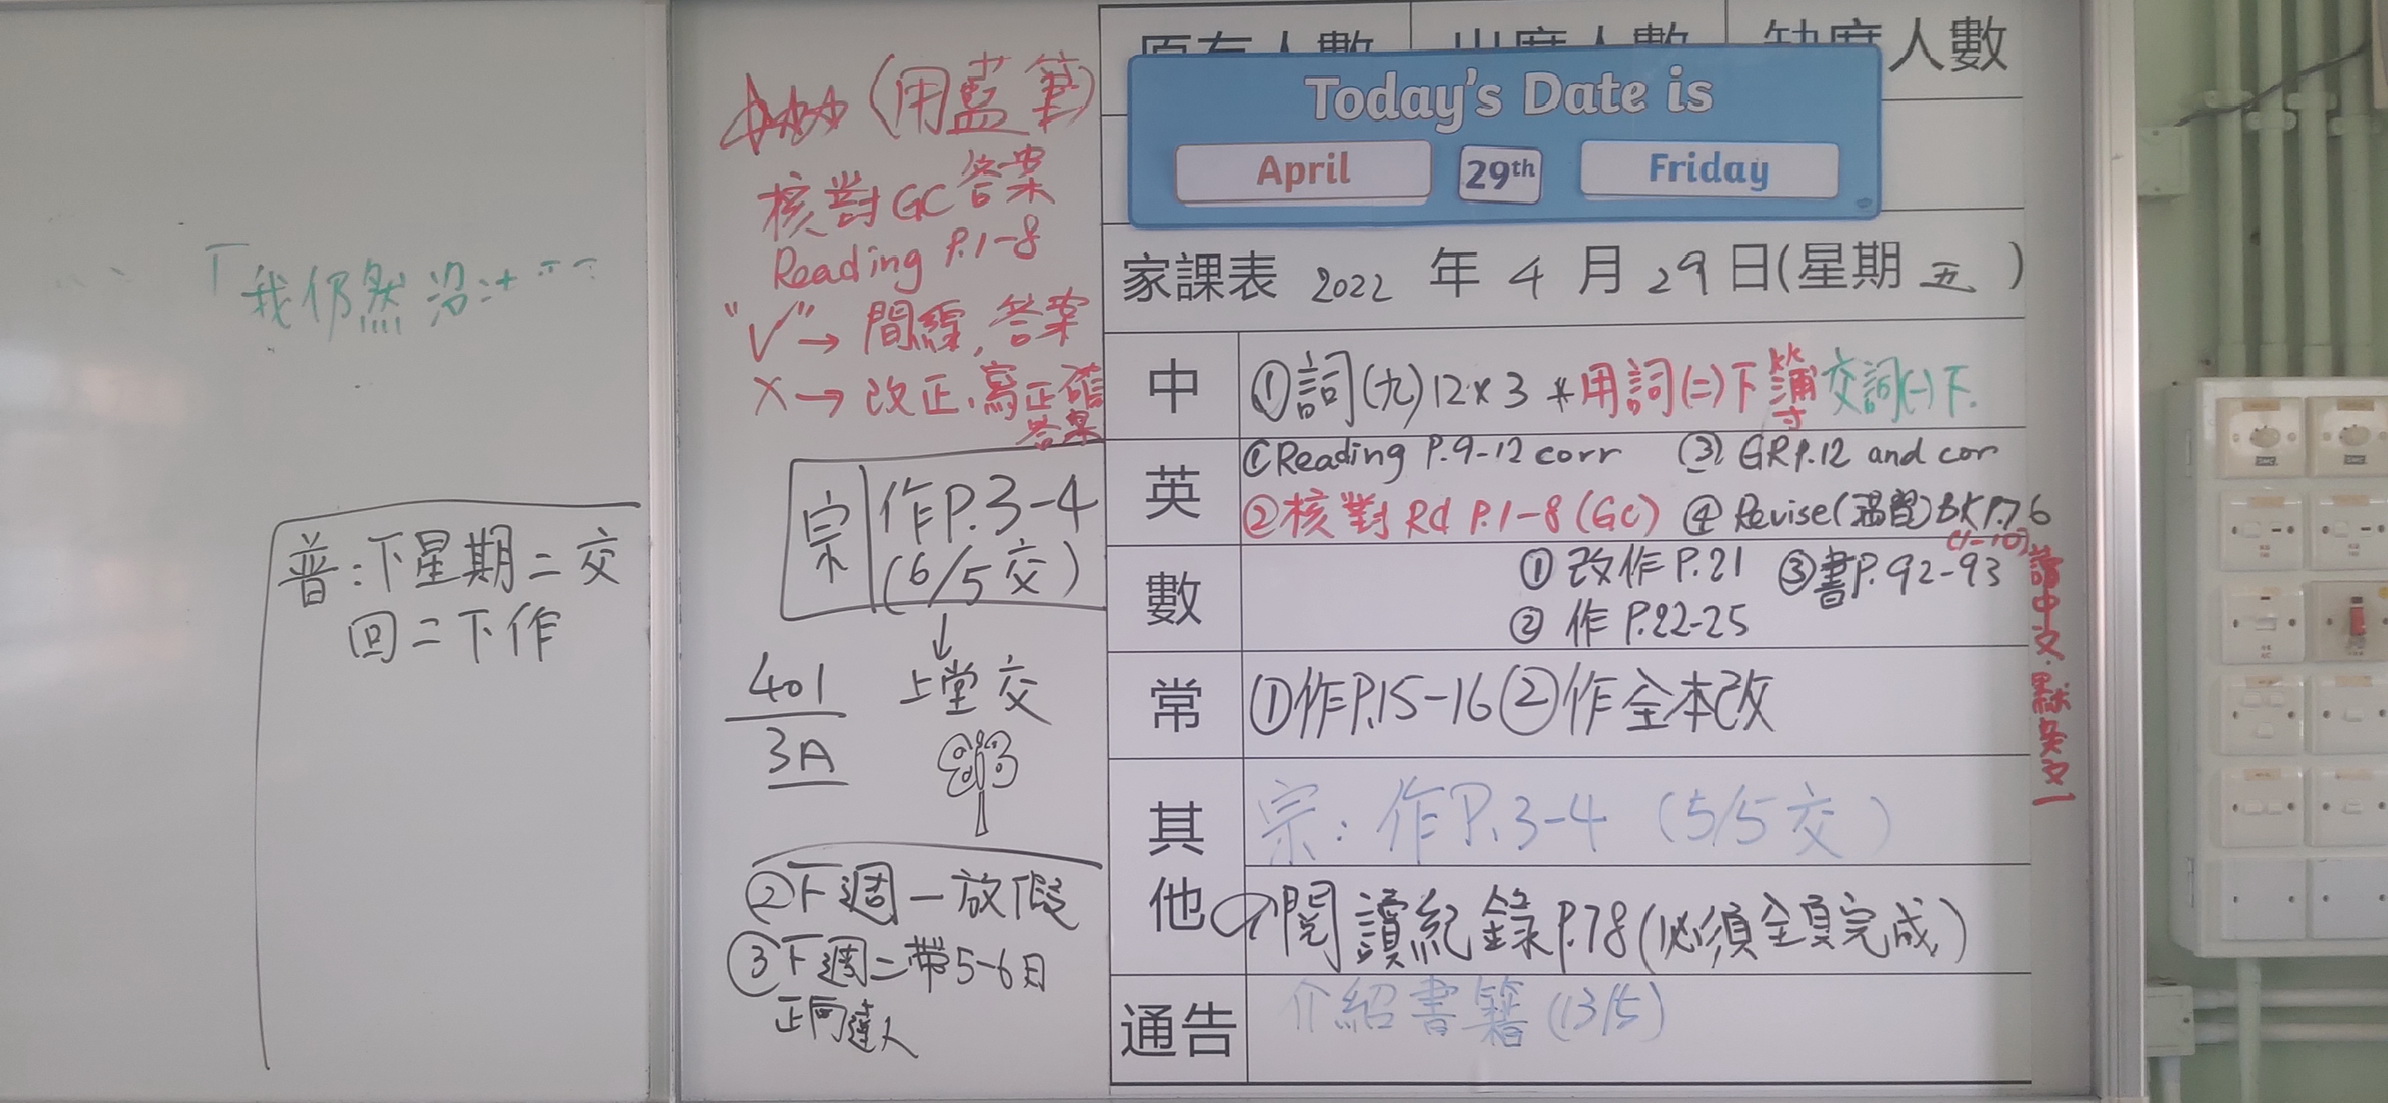 「我仍然沒
普:下星期二交
回二下作
(用藍筆)
核對GC答案
Reading P.1-8
"✓"→間線,答案
X→改正,寫正確
答案
宗 作P.3-4
(6/5交)
↓
上堂交
401
3A
②下週一放假
③下週二帶5-6月
正向達人
人數
Today's Date is
April 29th Friday
家課表 2022 年 4 月 29 日(星期 五 )
中 ①詞(九)12×3 *用詞(二)下簿 交詞(一)下.
英 ①Reading P.9-12 corr ③ GRP.12 and cor
②核對 Rd P.1-8 (GC) ④ Revise(溫習)BK P.76
(1-10)
數 ① 改作P.21 ③書P.92-93
② 作 P.22-25
常 ①作P.15-16 ②作全本改
其他 宗:作P.3-4 (5/5交)
閱讀紀錄P.78(必須全頁完成)
通告 介紹書籍(13/5)
讀中文.默英文